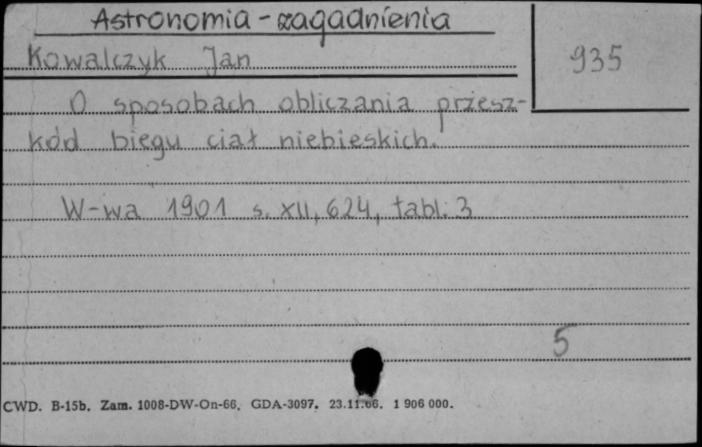 Astronomia - zagadnienia
Kowalczyk Jan
935
O sposobach obliczania przesz-
kód biegu ciał niebieskich.
W-wa 1901 s. XII, 624, tabl. 3
5
CWD. B-15b. Zam. 1008-DW-On-66. GDA-3097. 23.11.66. 1 906 000.